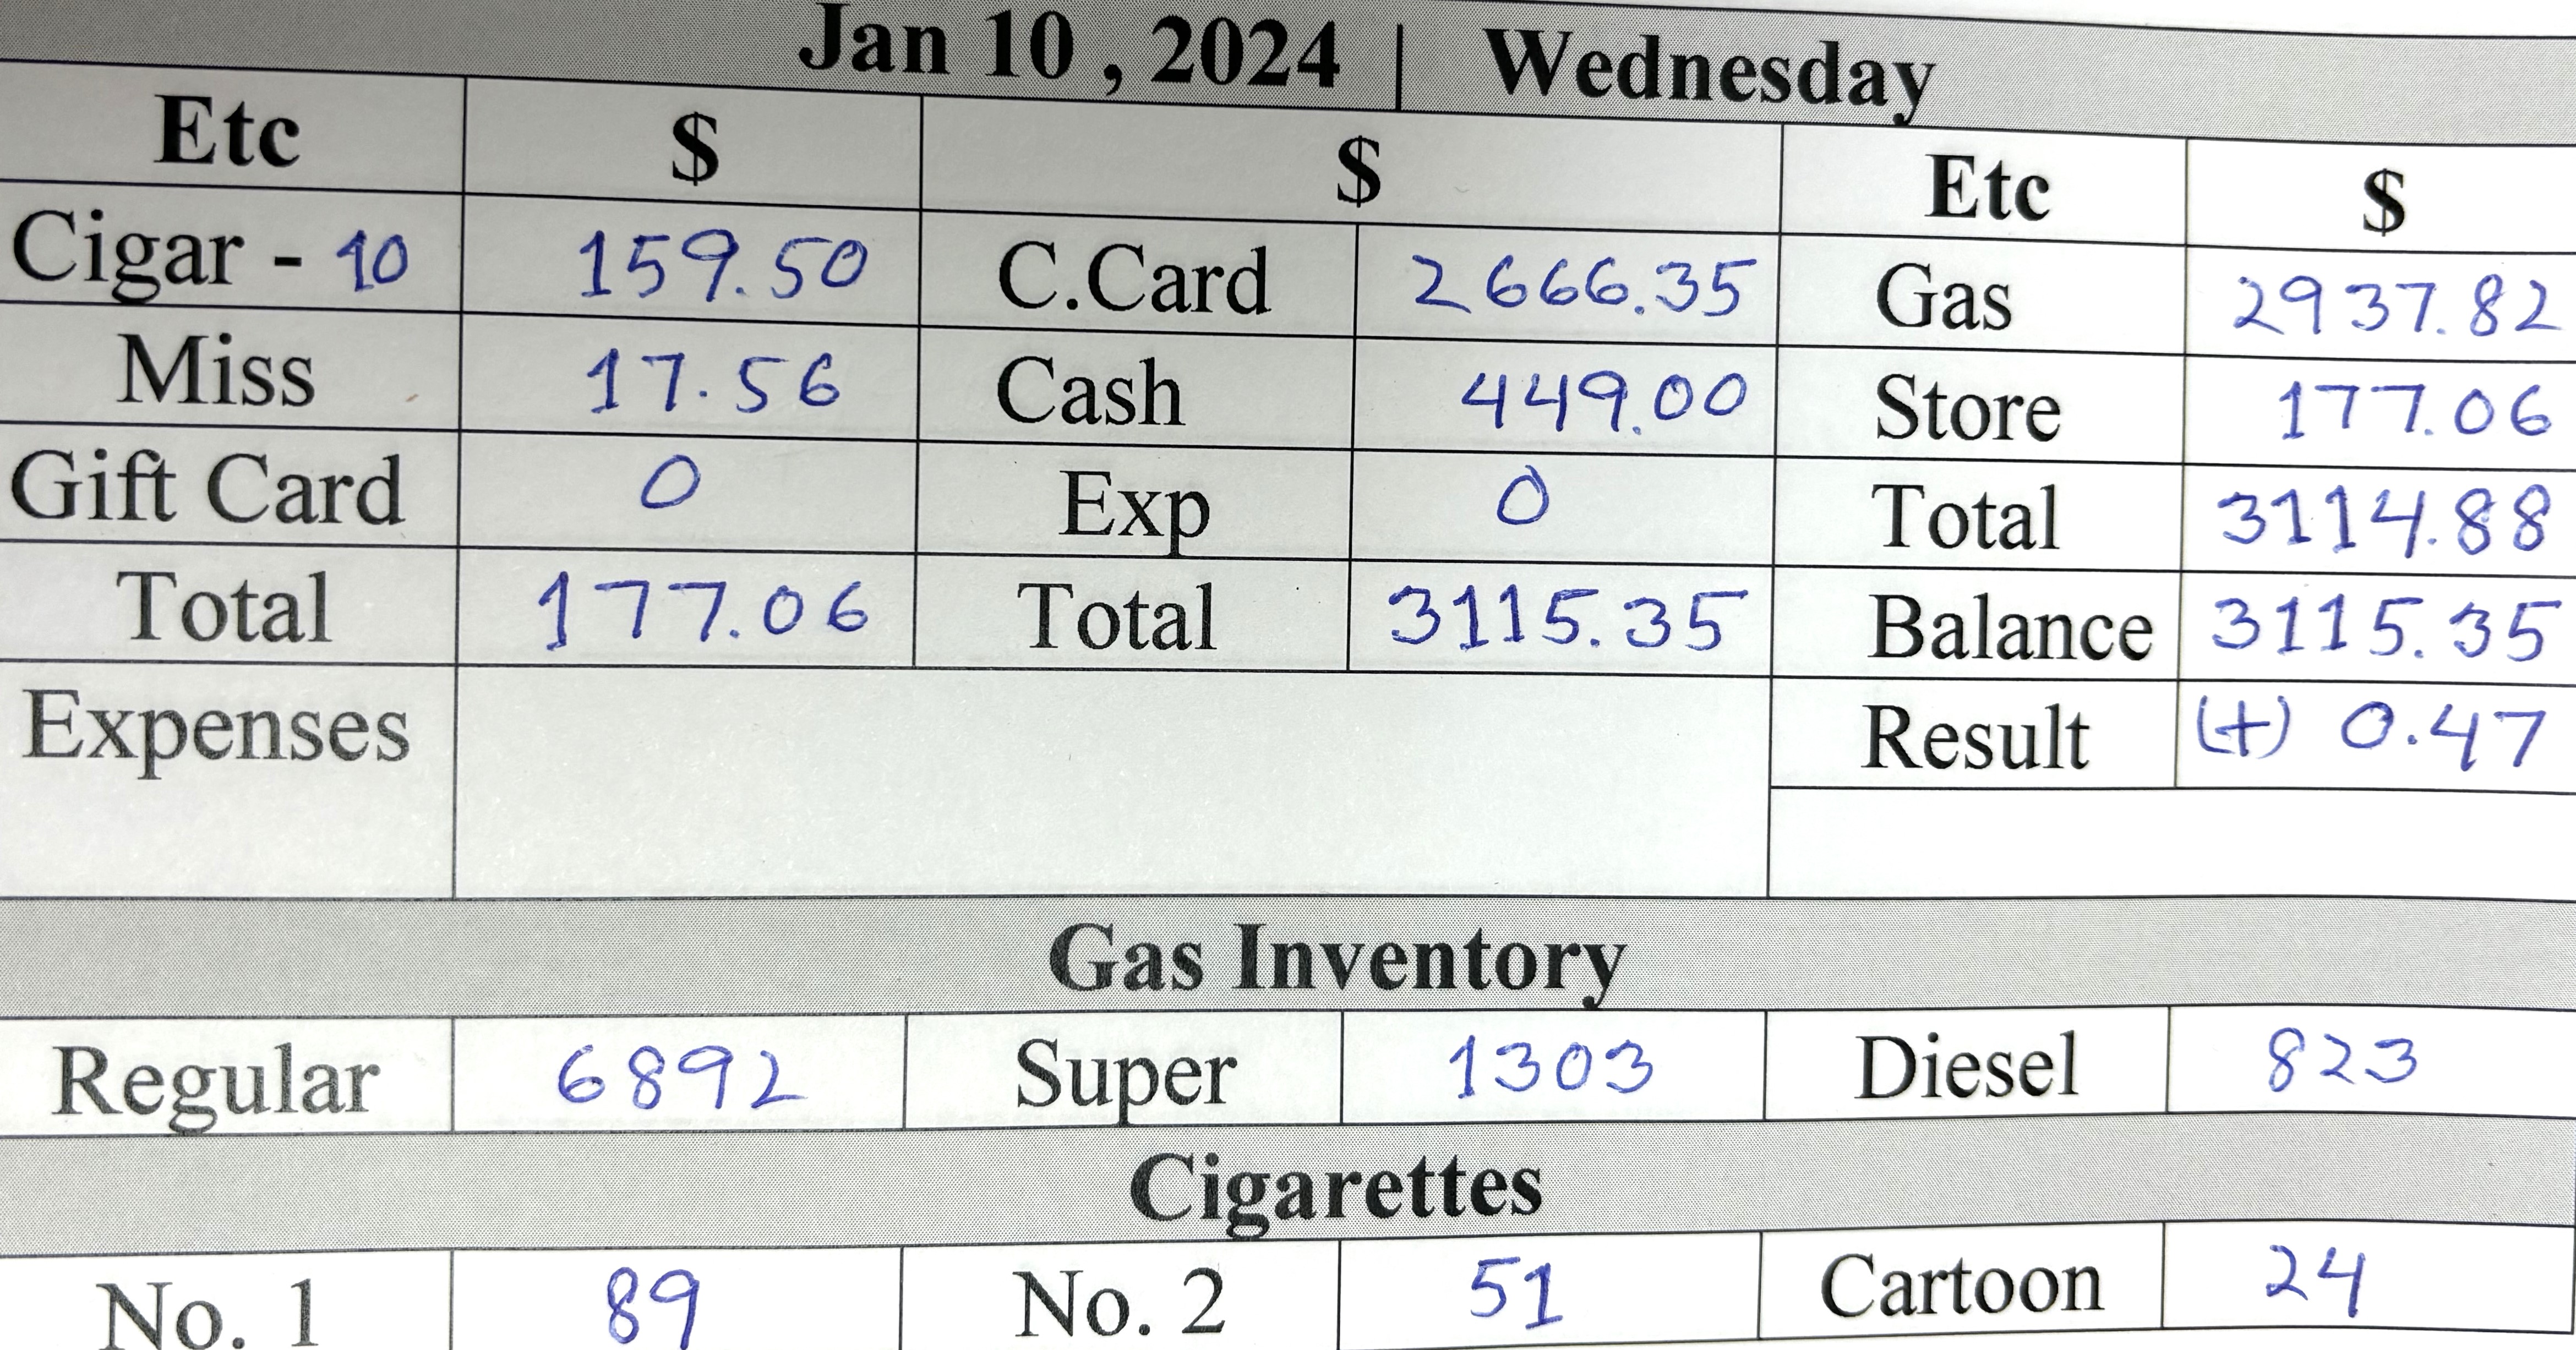 Jan 10 , 2024 | Wednesday
Etc $ $ Etc $
Cigar - 10 159.50 C.Card 2666.35 Gas 2937.82
Miss 17.56 Cash 449.00 Store 177.06
Gift Card 0 Exp 0 Total 3114.88
Total 177.06 Total 3115.35 Balance 3115.35
Expenses Result (+) 0.47
Gas Inventory
Regular 6892 Super 1303 Diesel 823
Cigarettes
No. 1 89 No. 2 51 Cartoon 24